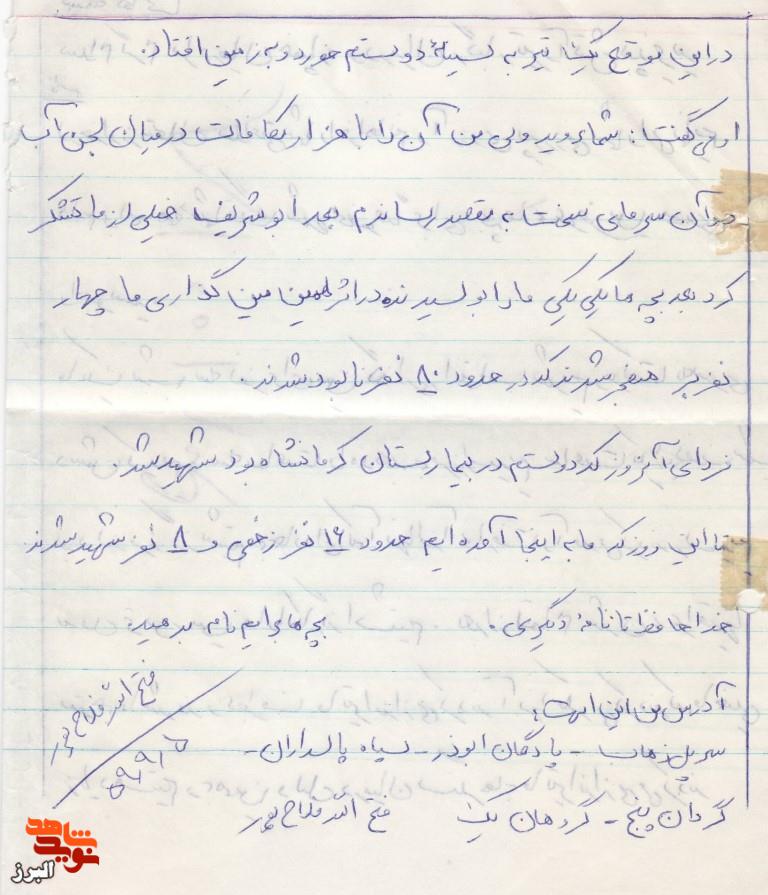 دراین موقع یک تیر به سینهٔ دوستم خورد و به زمین افتاد.
او می گفت: شما بروید ولی من آن را با هزار مکافات در میان لجن آب
و آن سرمای سخت به مقصد رساندم بعد ابوشریف خیلی از ما تشکر
کرد بعد بچه ها یکی یکی ما را بوسیدند در اثر همین مین گذاری ما چهار
نفربر منفجر شدند که در حدود ۸۰ نفر نابود شدند.
فردای آنروز که دوستم در بیمارستان کرمانشاه بود شهید شد و
تا این روز که ما به اینجا آمده ایم حدود ۱۶ نفر زخمی و ۸ نفر شهید شدند
خداحافظ تا نامهٔ دیگری. بچه ها برایم نامه بدهید.
آدرس من این است:
سرپل ذهاب - پادگان ابوذر - سپاه پاسداران -
گردان پنج - گروهان یک فتح الله فلاح پور
فتح الله فلاح پور
۵۹/۹/۱۶
نوید شاهد
البرز